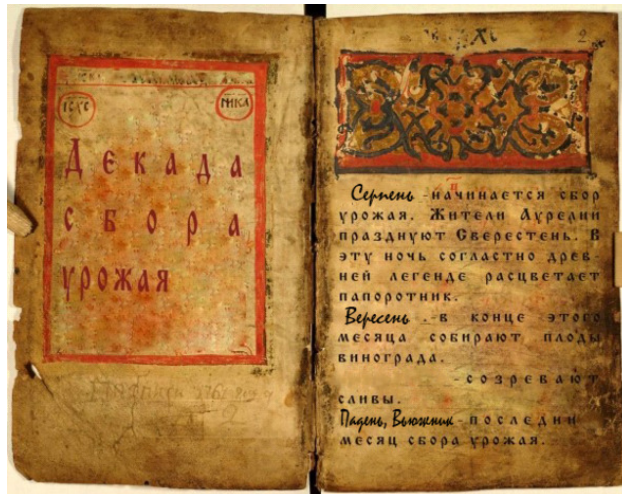 Декада
сбора
урожая
Серпень - начинается сбор
урожая. Жители Аурелии
празднуют Сверестень. В
эту ночь согластно древ-
ней легенде расцветает
папоротник.
Вересень .-в конце этого
месяца собирают плоды
винограда.
-созревают
сливы.
Падень, Вьюжник-последнии
месяц сбора урожая.